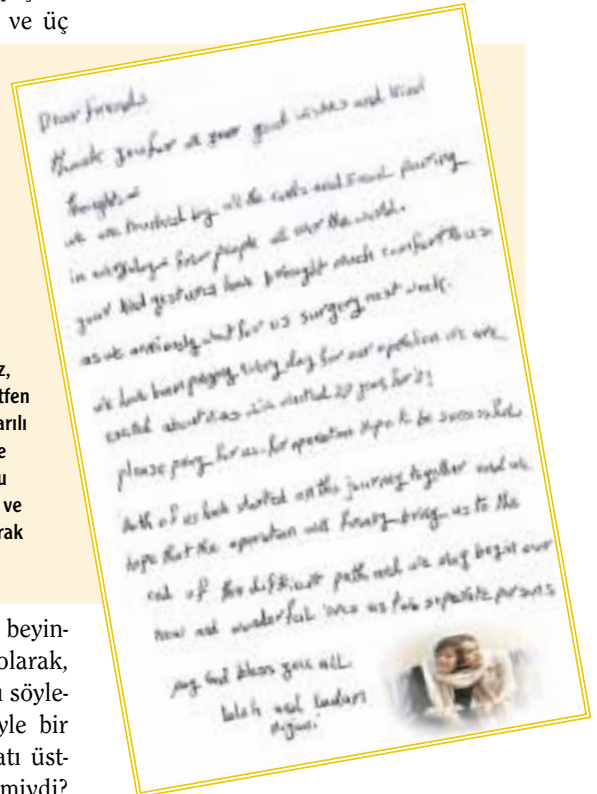 ve üç
Dear friends
thank you for all your good wishes and kind
thoughts
we are touched by all the cards and email pouring
in everyday from people all over the world.
your kind gestures have brought much comfort to us
as we anxiously wait for us surgery next week.
we have been praying every day for our operation we are
excited about it as we waited 29 years for it
please pray for us for operation hope to be successful.
both of us have started on this journey together and we
hope that the operation will finally bring us to the
end of this difficult path and we may begin our
new and wonderful lives as two separate persons
may God bless you all.
laleh and ladan
z,
tfen
arılı
e
u
ve
rak
beyin-
olarak,
ı söyle-
yle bir
atı üst-
miydi?